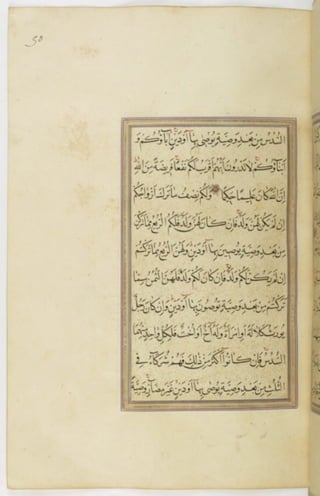 50
السُّدُسُ مِن بَعدِ وَصِيَّةٍ يُوصى بِها أَو دَينٍ آباؤُكُم وَ
أَبناؤُكُم لا تَدرونَ أَيُّهُم أَقرَبُ لَكُم نَفعًا فَريضَةً مِنَ اللهِ
إِنَّ اللهَ كانَ عَليمًا حَكيمًا وَلَكُم نِصفُ ما تَرَكَ أَزواجُكُم
إِن لَم يَكُن لَهُنَّ وَلَدٌ فَإِن كانَ لَهُنَّ وَلَدٌ فَلَكُمُ الرُّبُعُ مِمّا تَرَكنَ
مِن بَعدِ وَصِيَّةٍ يُوصينَ بِها أَو دَينٍ وَلَهُنَّ الرُّبُعُ مِمّا تَرَكتُم
إِن لَم يَكُن لَكُم وَلَدٌ فَإِن كانَ لَكُم وَلَدٌ فَلَهُنَّ الثُّمُنُ مِمّا
تَرَكتُم مِن بَعدِ وَصِيَّةٍ تُوصونَ بِها أَو دَينٍ وَإِن كانَ رَجُلٌ
يُورَثُ كَلالَةً أَوِ امرَأَةٌ وَلَهُ أَخٌ أَو أُختٌ فَلِكُلِّ واحِدٍ مِنهُمَا
السُّدُسُ فَإِن كانوا أَكثَرَ مِن ذلِكَ فَهُم شُرَكاءُ في
الثُّلُثِ مِن بَعدِ وَصِيَّةٍ يُوصى بِها أَو دَينٍ غَيرَ مُضارٍّ وَصِيَّةً